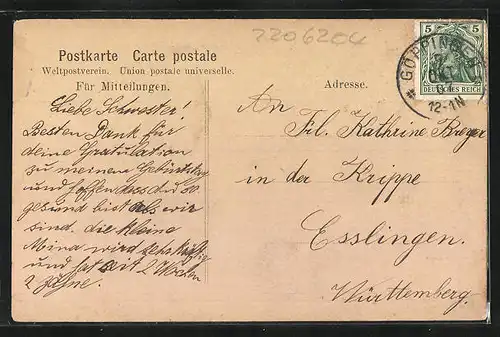 2206204
Postkarte Carte postale
Weltpostverein. Union postale universelle.
Für Mitteilungen.
Adresse.
5 5
DEUTSCHES REICH
GÖPPINGEN
12-1N
Liebe Schwester!
Besten Dank für
deine Gratulation
zu meinem Geburtstag
und hoffen dass du so
gesund bist als wir
sind. die kleine
Mina wird
und hat seit 2 Wochen
2 Zähne.
An
Frl. Kathrine
in der Krippe
Esslingen.
Württemberg.